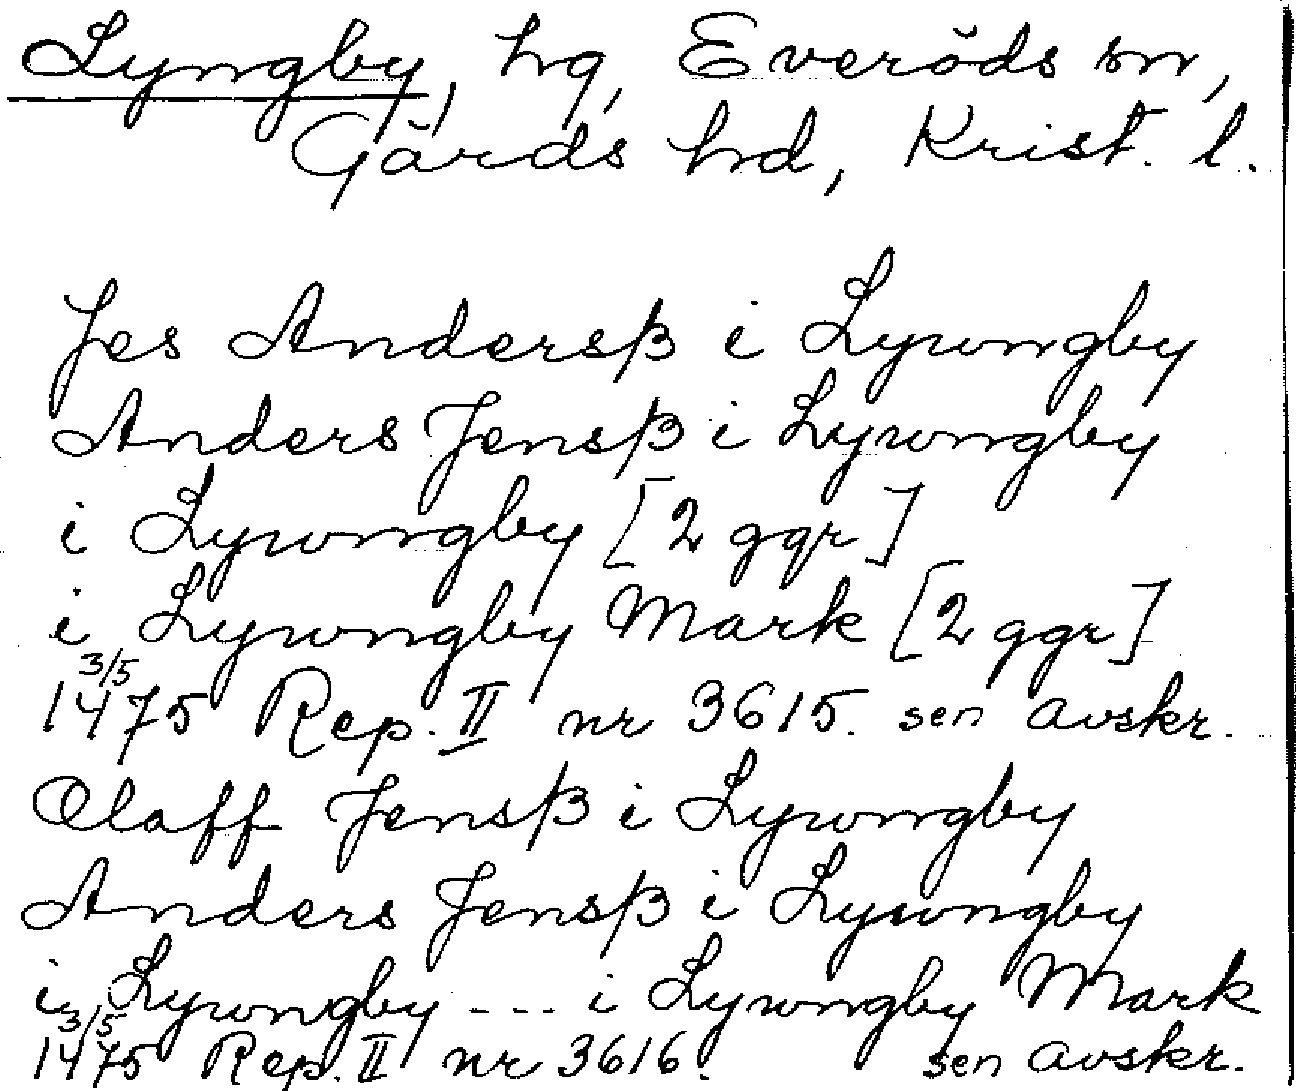 Lyngby, hg, Everöds sn,
Gärds hd, Krist. l.
Jes Andersß i Lywngby
Anders Jensß i Lywngby
i Lywngby [2 ggr]
i Lywngby Mark [2 ggr]
3/5
1475 Rep. II nr 3615. sen avskr.
Olaff Jensß i Lywngby
Anders Jensß i Lywngby
i Lywngby --- i Lywngby Mark
3/5
1475 Rep. II nr 3616. sen avskr.